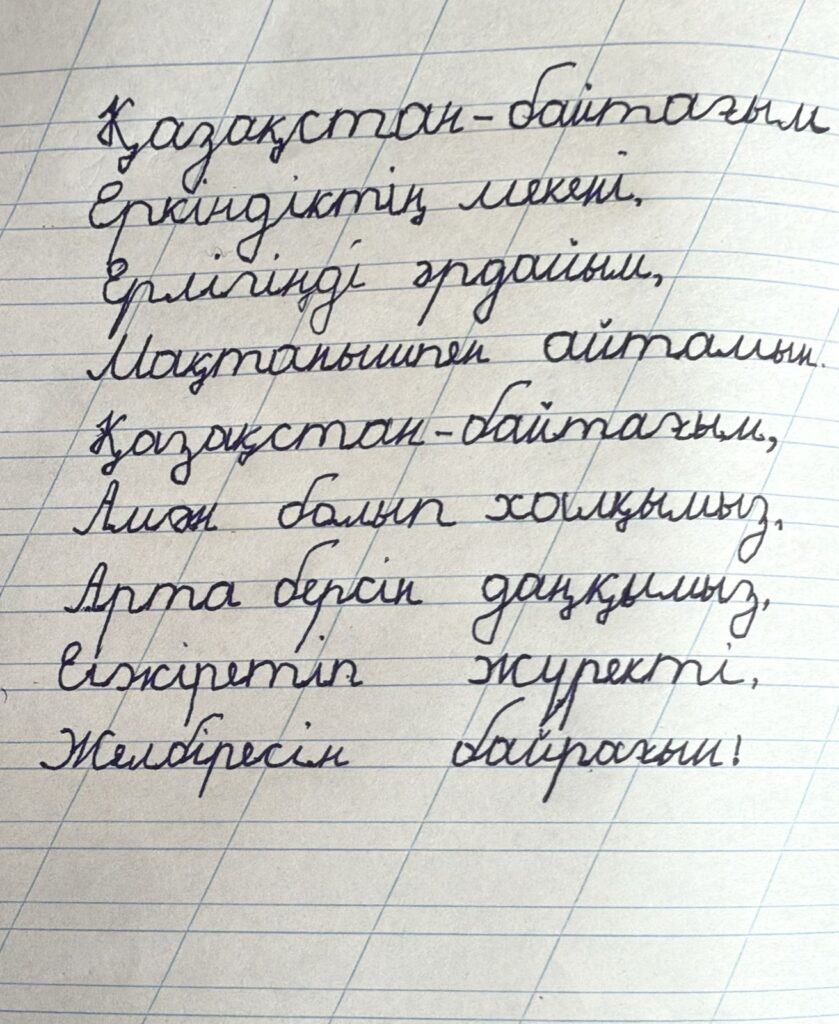 Қазақстан-байтағым
Еркіндіктің мекені,
Ерлігіңді әрдайым,
Мақтанышпен айтамын.
Қазақстан-байтағым,
Аман болып халқымыз,
Арта берсін даңқымыз,
Елжіретіп жүректі,
Желбіресін байрағым!